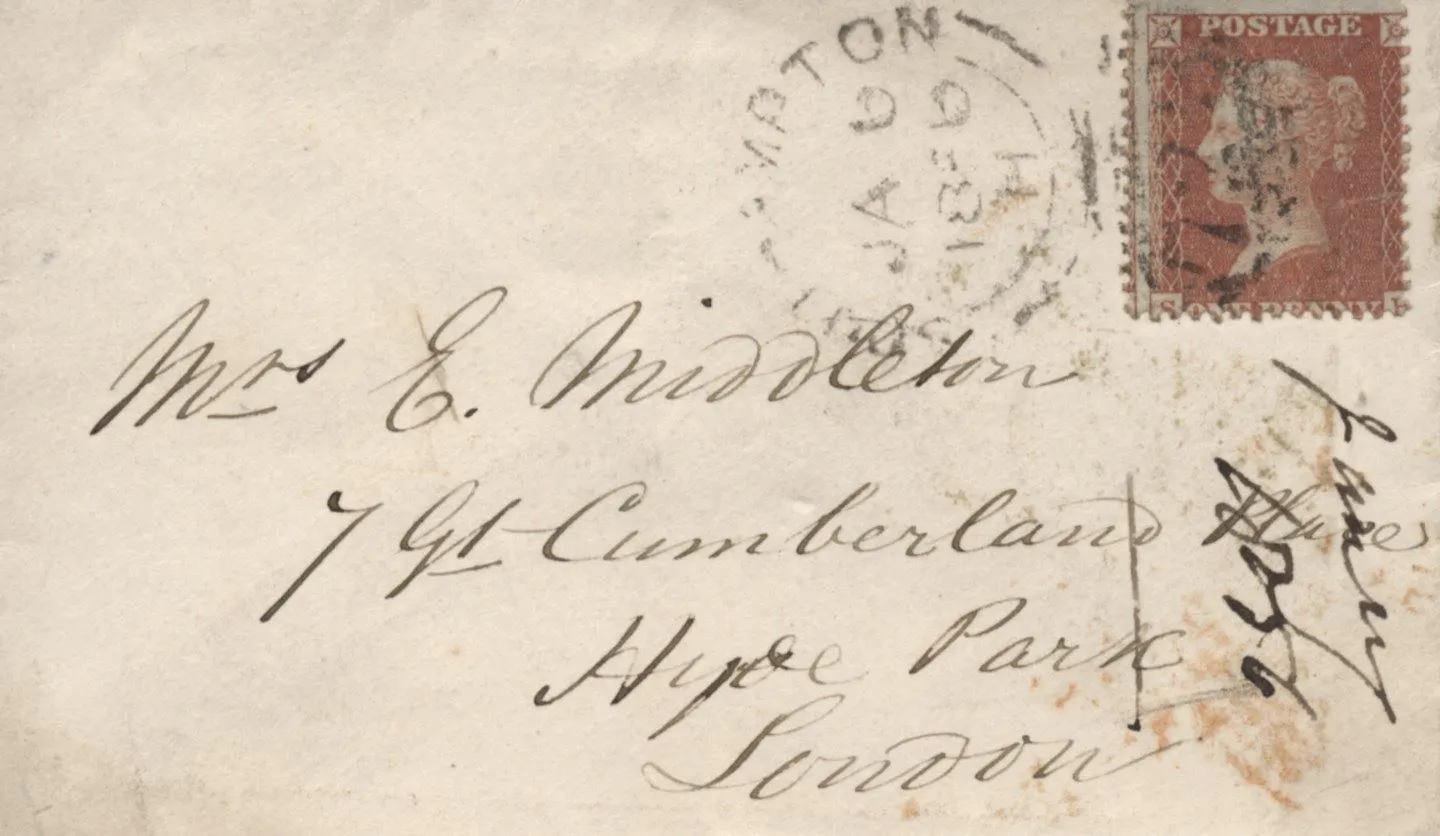 POSTAGE
ONE PENNY
S L
JA 9
Mrs E. Middleton
7 Gt Cumberland Place
Hyde Park
London